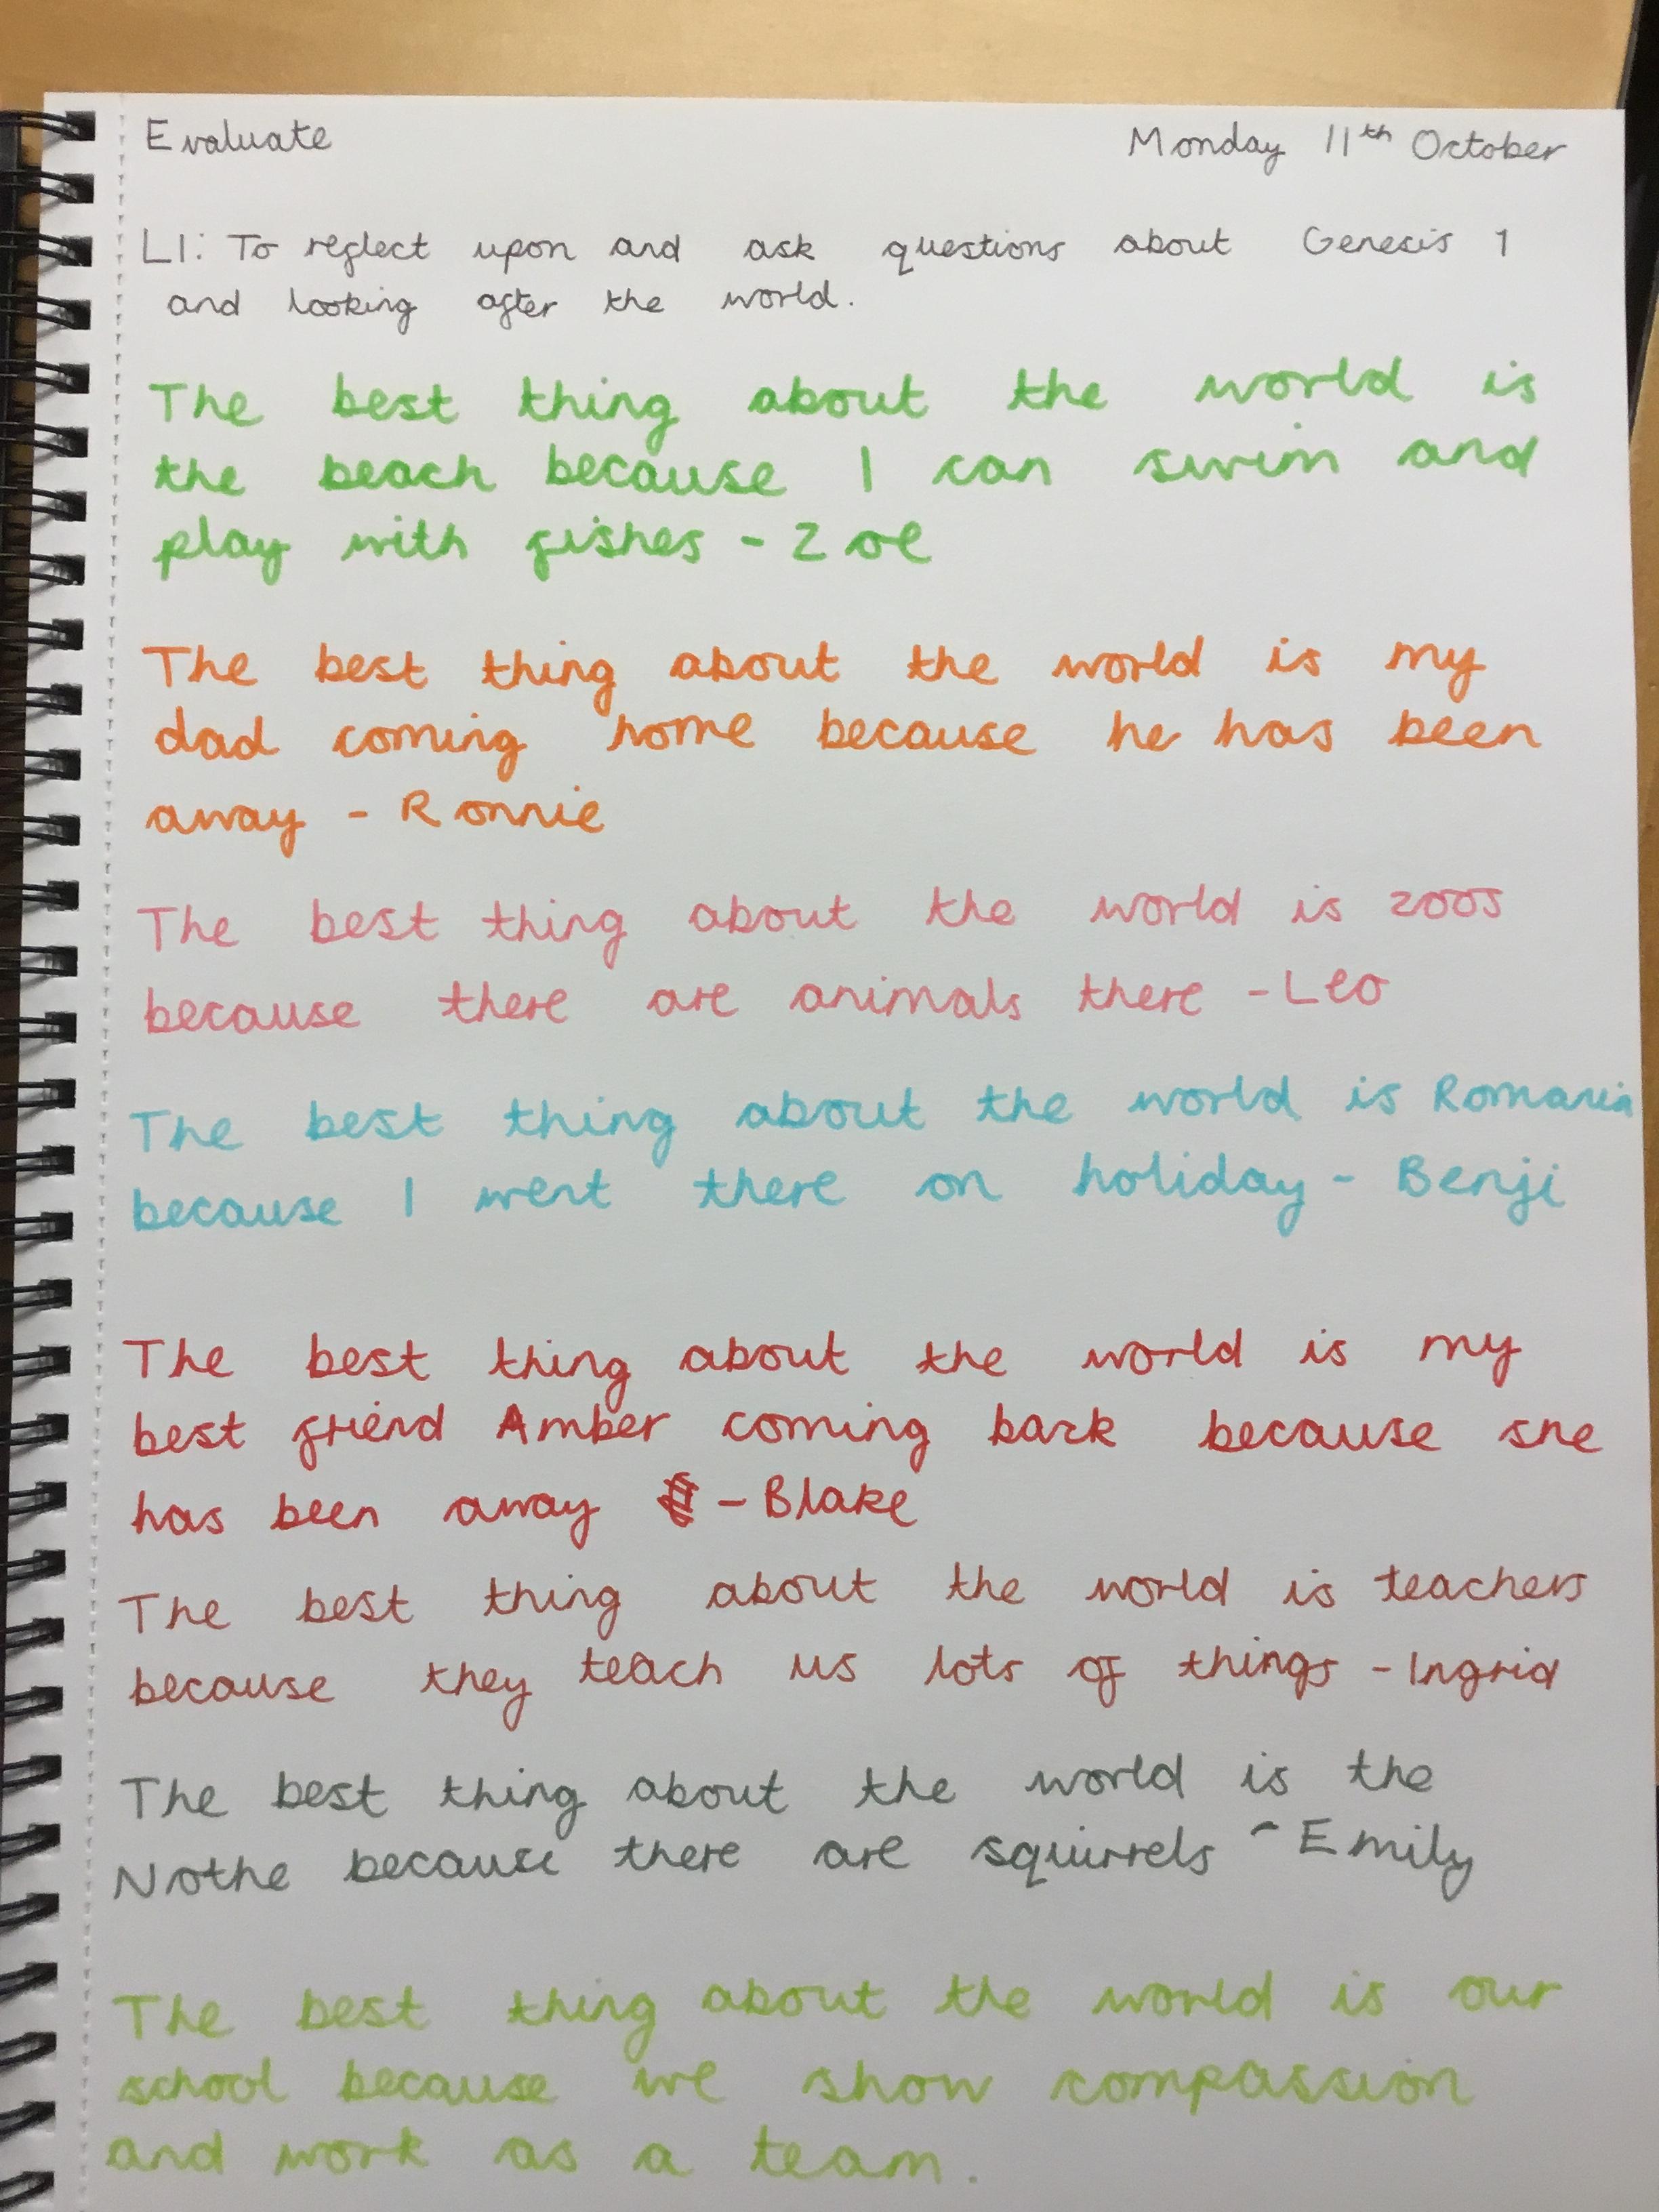 Evaluate Monday 11th October
LI: To reflect upon and ask questions about Genesis 1
and looking after the world.
The best thing about the world is
the beach because I can swim and
play with fishes - Zoe
The best thing about the world is my
dad coming home because he has been
away - Ronnie
The best thing about the world is zoos
because there are animals there - Leo
The best thing about the world is Romania
because I went there on holiday - Benji
The best thing about the world is my
best friend Amber coming back because she
has been away - Blake
The best thing about the world is teachers
because they teach us lots of things - Ingrid
The best thing about the world is the
Nothe because there are squirrels - Emily
The best thing about the world is our
school because we show compassion
and work as a team.